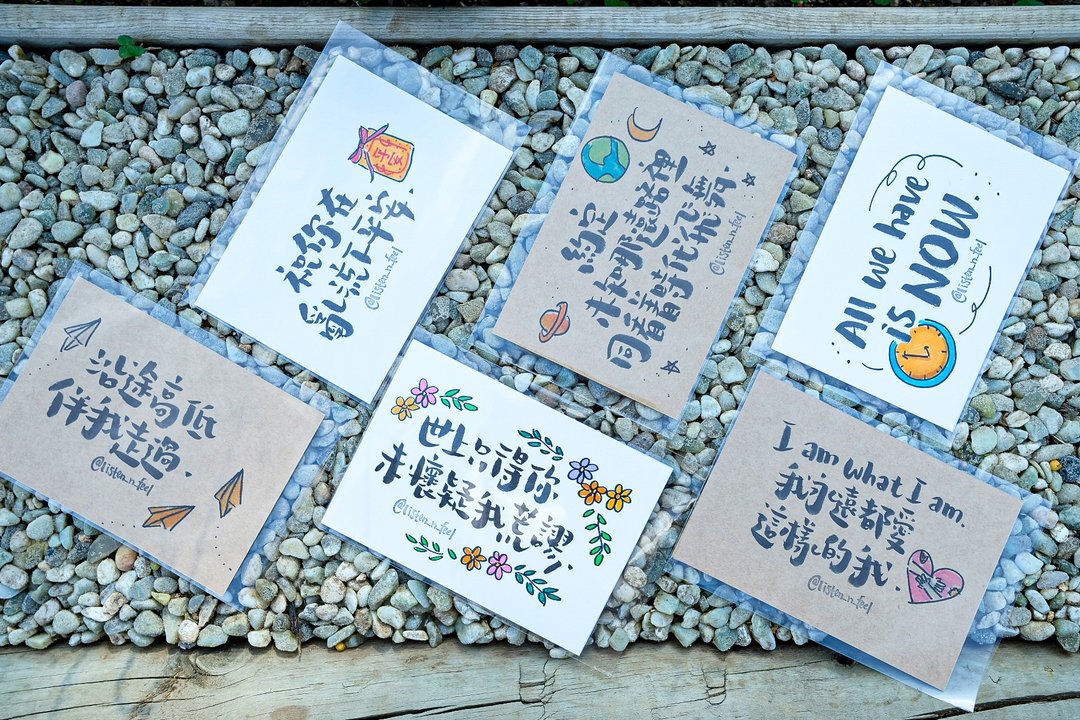 祝你在
亂流下平安.
@listen_n_feel
約定
未知那遠路裡
同看著時代飛奔.
@listen_n_feel
All we have
is NOW.
@listen_n_feel
沿途高低
伴我走過.
@listen_n_feel
世上只得你
未懷疑我荒謬.
@listen_n_feel
I am what I am.
我永遠都愛
這樣的我.
@listen_n_feel